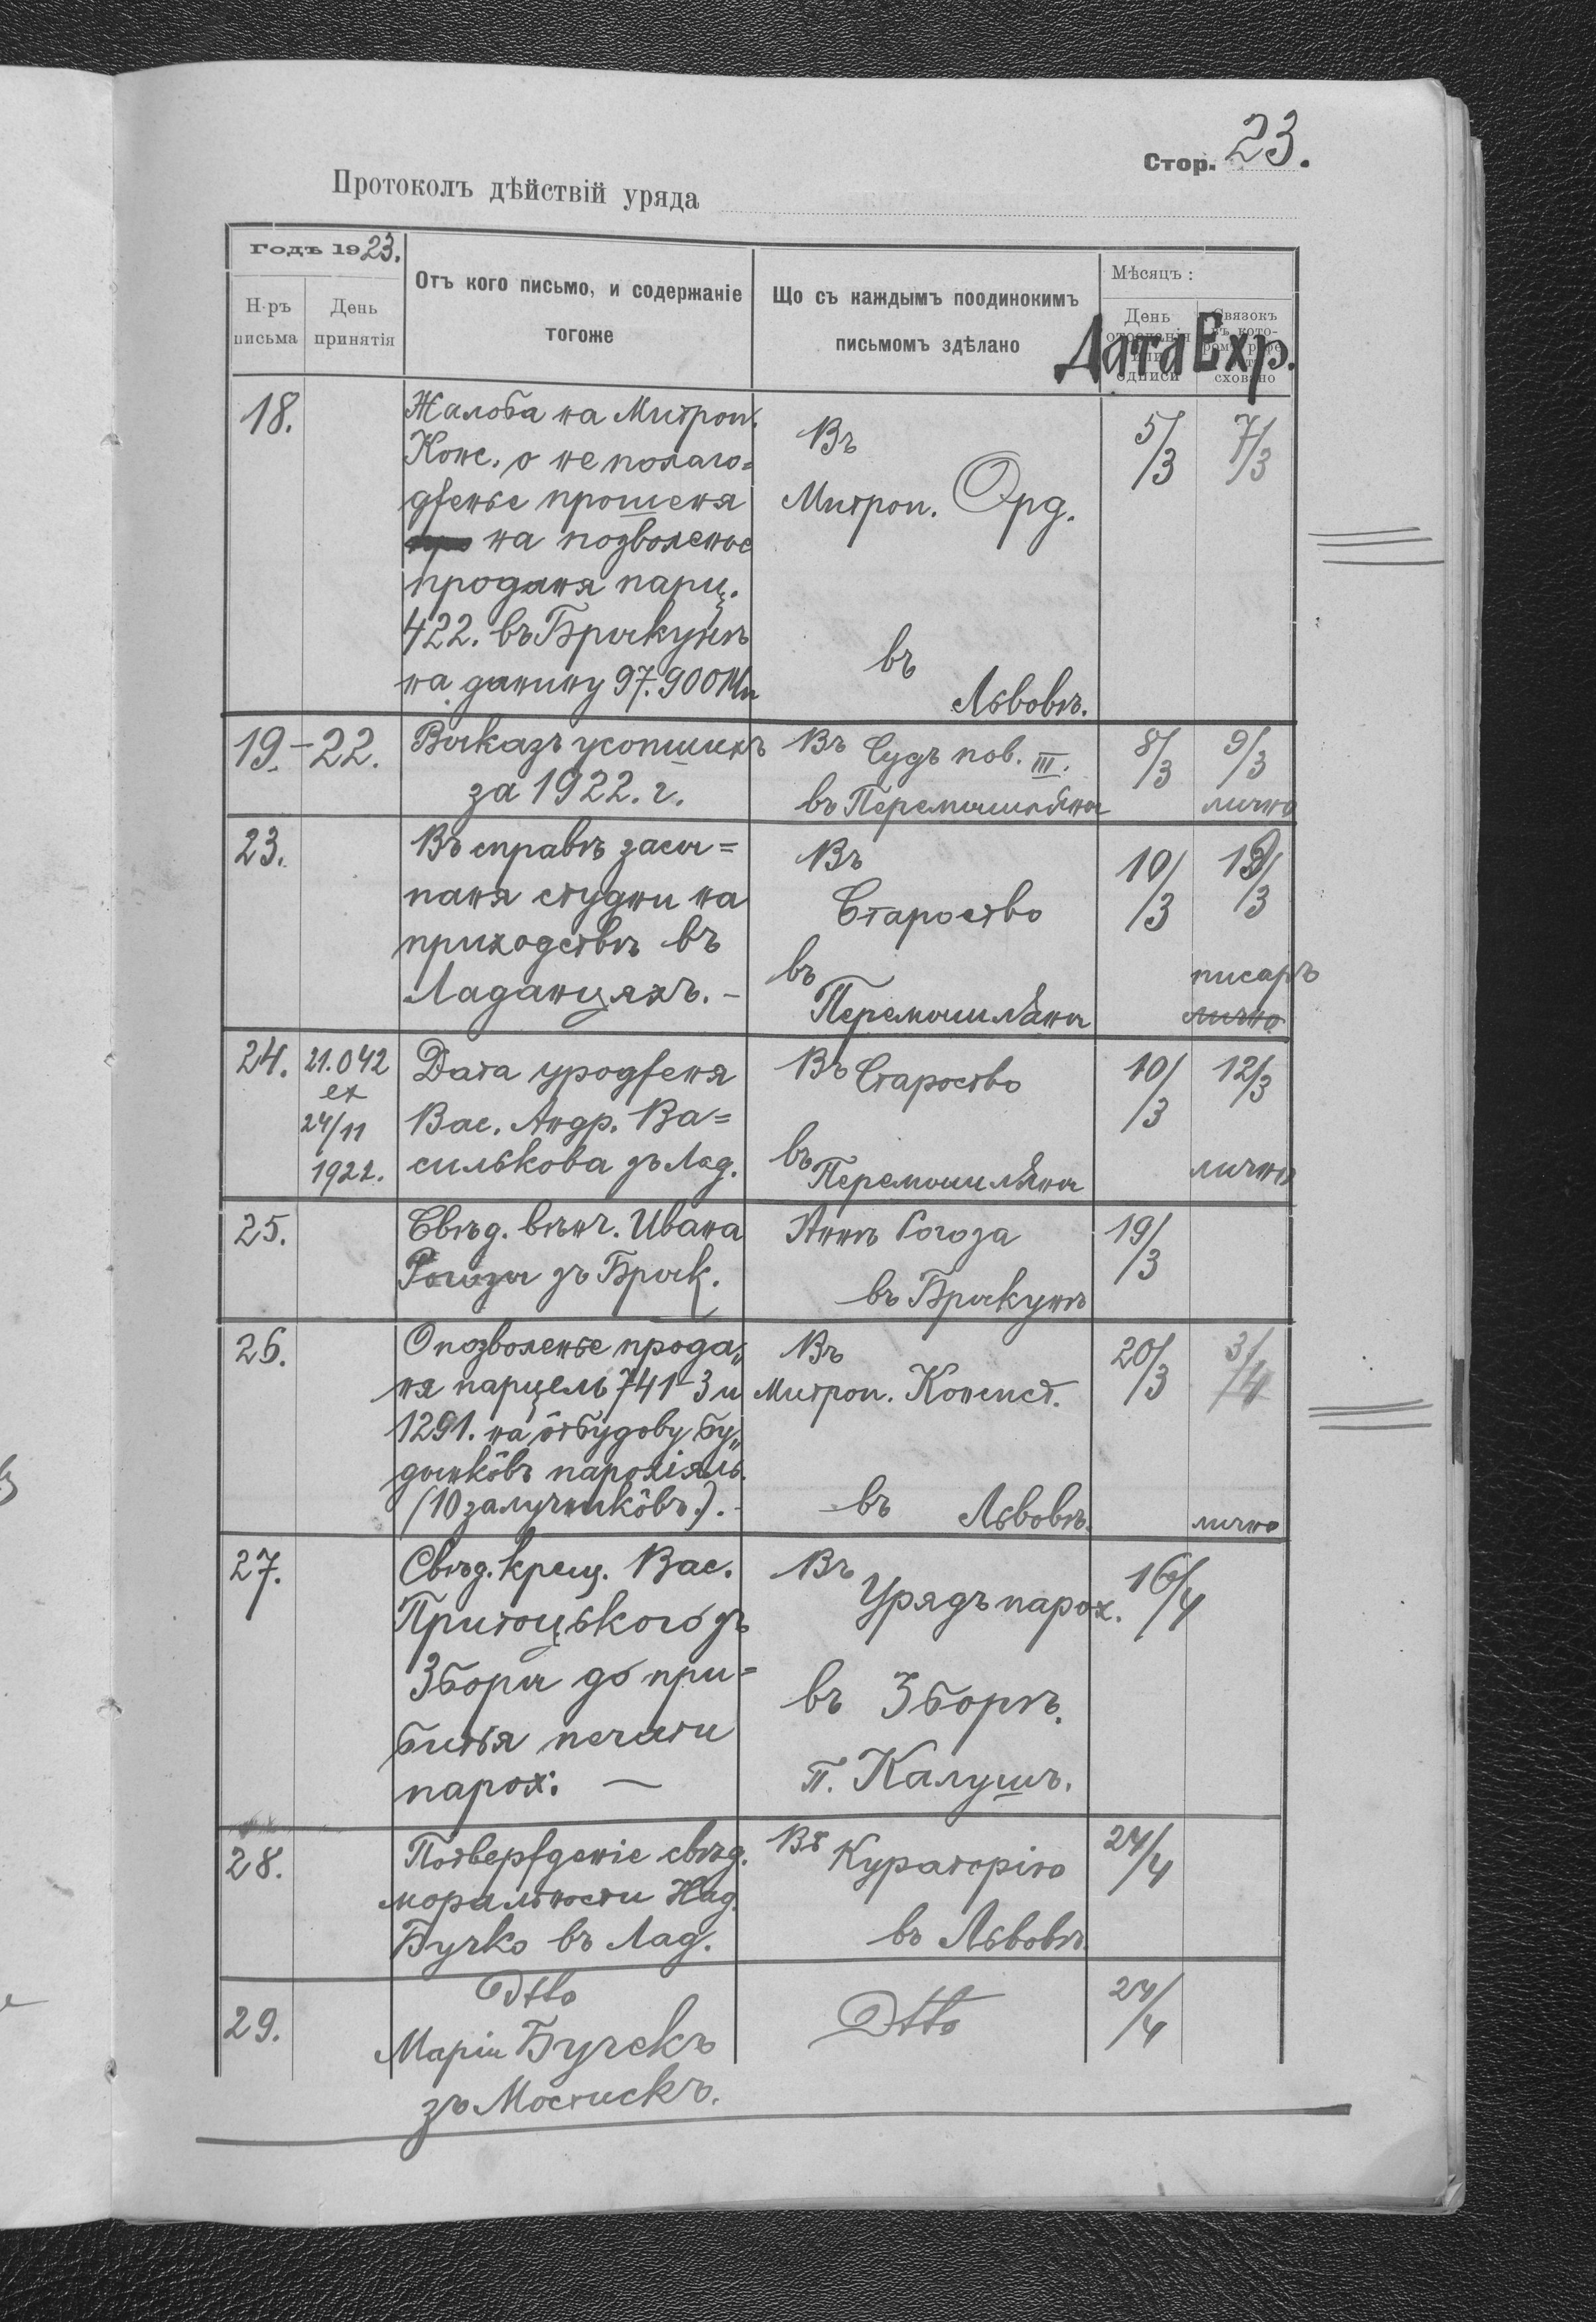 Стор. 23.
Протоколъ дѣйствій уряда
Годъ 1923.
Н-ръ письма
День принятія
Отъ кого письмо, и содержаніе тогоже
Що съ каждымъ поодинокимъ письмомъ здѣлано
Мѣсяцъ:
День
Связокъ
Дата Ехр.
сховано
18.
Жалоба на Митроп.
Конс. о неполаго=
дженье прошеня
на позволенье
проданя парц.
422. въ Брыкунѣ
на данину 97.900 Мп
Въ
Митроп. Орд.
въ
Львовѣ.
5/3
7/3
19.-22.
Выказъ усопшихъ
за 1922. г.
Въ Судъ пов. III.
въ Перемышляны
8/3
9/3
лично
23.
Въ справѣ засы=
паня студни на
приходствѣ въ
Ладанцяхъ. -
Въ
Староство
въ
Перемышляны
10/3
12/3
писаръ
лично
24.
21.042
ex
24/11
1922.
Дата уродженя
Вас. Андр. Ва=
силькова зъ Лад.
Въ Староство
въ
Перемышляны
10/3
12/3
лично
25.
Свѣд. вѣнч. Ивана
Рогозы зъ Брык.
Аннѣ Рогоза
въ Брыкунѣ
19/3
26.
О позволенье прода„
ня парцель 741-3 и
1291. на ôтбудову бу„
дынкôвъ парохіяль.
(10 залучникôвъ). -
Въ
Митроп. Консист.
въ Львовѣ.
20/3
3/4
лично
27.
Свѣд. крещ. Вас.
Притоцького зъ
Зборы до при=
битья печати
парох: —
Въ
Урядъ парох.
въ Зборѣ.
п. Калушъ.
16/4
28.
Потвердженіе свѣд.
моральности Над.
Бучко въ Лад.
Въ Кураторію
въ Львовѣ
24/4
29.
Dtto
Маріи Бучекъ
зъ Мостискъ.
Dtto
24/4